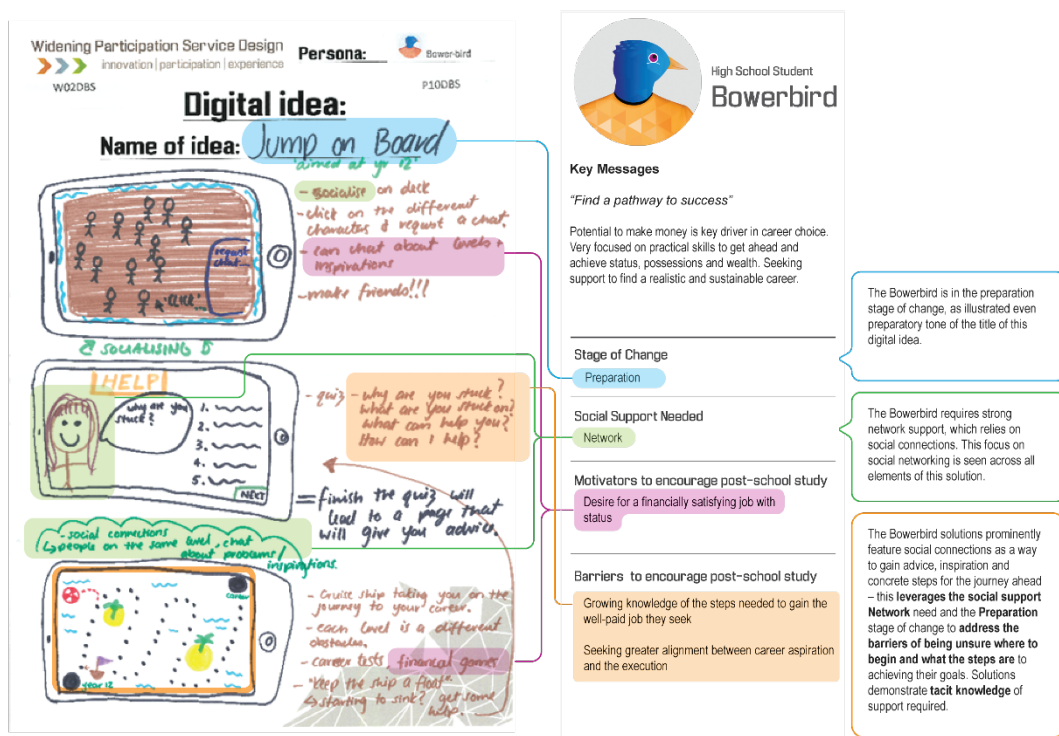 Widening Participation Service Design
innovation | participation | experience
Persona:
Bower-bird
W02DBS
P10DBS
Digital idea:
Name of idea: Jump on Board
'aimed at yr 12'
- socialise on deck
- click on the different
characters & request a chat.
- can chat about levels +
inspirations
- make friends!!!
request
chat
'click'
SOCIALISING
HELP
why are you
stuck?
1.
2.
3.
4.
5.
NEXT
- quiz - why are you stuck?
What are you stuck on?
What can help you?
How can I help?
= finish the quiz will
lead to a page that
will give you advice.
- social connections
↳ people on the same level, chat
about problems/
inspirations.
career
year 12
- Cruise ship taking you on the
journey to your career.
- each level is a different
obstacles.
- career tests, financial games
- "keep the ship a float"
↳ starting to sink? get some
help.
High School Student
Bowerbird
Key Messages
“Find a pathway to success”
Potential to make money is key driver in career choice.
Very focused on practical skills to get ahead and
achieve status, possessions and wealth. Seeking
support to find a realistic and sustainable career.
Stage of Change
Preparation
Social Support Needed
Network
Motivators to encourage post-school study
Desire for a financially satisfying job with
status
Barriers to encourage post-school study
Growing knowledge of the steps needed to gain the
well-paid job they seek
Seeking greater alignment between career aspiration
and the execution
The Bowerbird is in the preparation
stage of change, as illustrated even
preparatory tone of the title of this
digital idea.
The Bowerbird requires strong
network support, which relies on
social connections. This focus on
social networking is seen across all
elements of this solution.
The Bowerbird solutions prominently
feature social connections as a way
to gain advice, inspiration and
concrete steps for the journey ahead
– this leverages the social support
Network need and the Preparation
stage of change to address the
barriers of being unsure where to
begin and what the steps are to
achieving their goals. Solutions
demonstrate tacit knowledge of
support required.